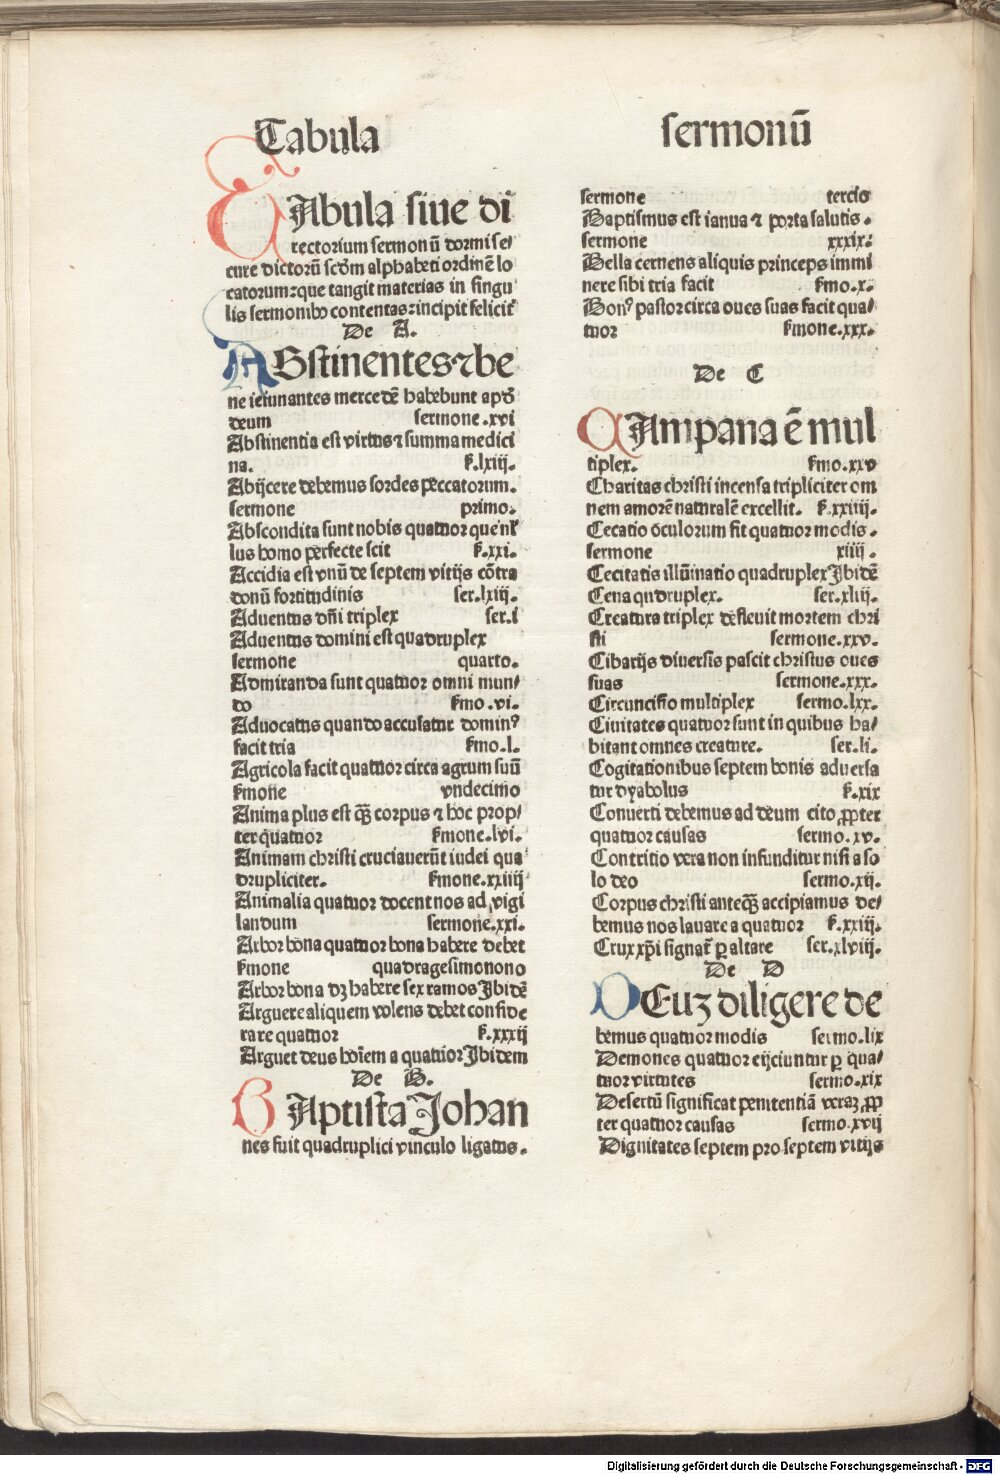 Tabula sermonū
TAbula siue di
rectorium sermonū dormi se/
cure dictorū scd̄m alphabeti ordinē lo
catorum: que tangit materias in singu
lis sermonibꝰ contentas: incipit felicitͬ
De A.
ABstinentes ⁊ be
ne ieiunantes mercedē habebunt apd̄
deum sermone .xvi
Abstinentia est virtus ⁊ summa medici
na. ẜ.lxiij.
Abijcere debemus sordes peccatorum.
sermone primo.
Abscondita sunt nobis quatuor que nl̄
lus homo perfecte scit ẜ.xxi.
Accidia est vnū de septem vitijs cōtra
donū fortitudinis ser.lxiij.
Aduentus dn̄i triplex ser.i
Aduentus domini est quadruplex
sermone quarto.
Admiranda sunt quatuor omni mun/
do ẜmo.vi.
Aduocatus quando accusatur dominꝰ
facit tria ẜmo.l.
Agricola facit quatuor circa agrum suū
ẜmone vndecimo
Anima plus est qꝫ̄ corpus ⁊ hoc prop/
ter quatuor ẜmone.lvi.
Animam christi cruciauerūt iudei qua
drupliciter. ẜmone.xxiiij
Animalia quatuor docent nos ad vigi
landum sermone.xxi.
Arbor bona quatuor bona habere debet
ẜmone quadragesimonono
Arbor bona dꝫ habere sex ramos Ibidē
Arguere aliquem volens debet conside
rare quatuor ẜ.xxxij
Arguet deus hoīem a quatuor Ibidem
De B.
BAptista Johan
nes fuit quadruplici vinculo ligatus.
sermone tercio
Baptismus est ianua ⁊ porta salutis.
sermone xxxix:
Bella cernens aliquis princeps immi
nere sibi tria facit ẜmo.x.
Bonꝰ pastor circa oues suas facit qua/
tuor ẜmone.xxx.
De C
CAmpana ē mul
tiplex. ẜmo.xxv
Charitas christi incensa tripliciter om
nem amorē naturalē excellit. ẜ.xxiiij.
Cecatio oculorum fit quatuor modis.
sermone xiiij.
Cecitatis illūinatio quadruplex Ibidē
Cena qudruplex. ser.xliij.
Creatura triplex defleuit mortem chri
sti sermone.xxv.
Cibarijs diuersis pascit christus oues
suas sermone.xxx.
Circuncisio multiplex sermo.lxx.
Ciuitates quatuor sunt in quibus ha/
bitant omnes creature. ser.li.
Cogitationibus septem bonis aduersa
tur dyabolus ẜ.xix
Conuerti debemus ad deum cito ꝓpter
quatuor causas sermo.xv.
Contritio vera non infunditur nisi a so
lo deo sermo.xij.
Corpus christi anteqꝫ̄ accipiamus de/
bemus nos lauare a quatuor ẜ.xxiij.
Crux xp̄i signat̄ ꝑ altare ser.xlviij.
De D
DEuꝫ diligere de
bemus quatuor modis sermo.lix
Demones quatuor eijciuntur ꝑ qua/
tuor virtutes sermo.xix
Desertū significat penitentiā veraꝫ ꝓp
ter quatuor causas sermo.xvij
Dignitates septem pro septem vitijs
Digitalisierung gefördert durch die Deutsche Forschungsgemeinschaft - DFG